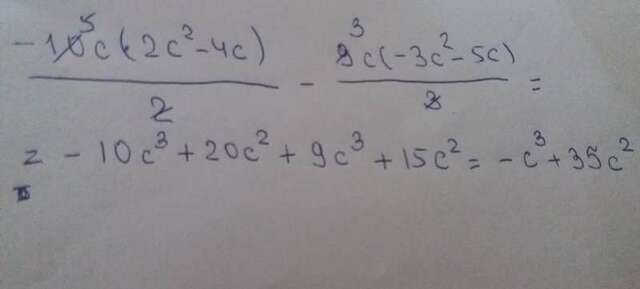 -10⁵c(2c²-4c)/2 - 9³c(-3c²-5c)/3 =
= -10c³+20c²+9c³+15c²= -c³+35c²